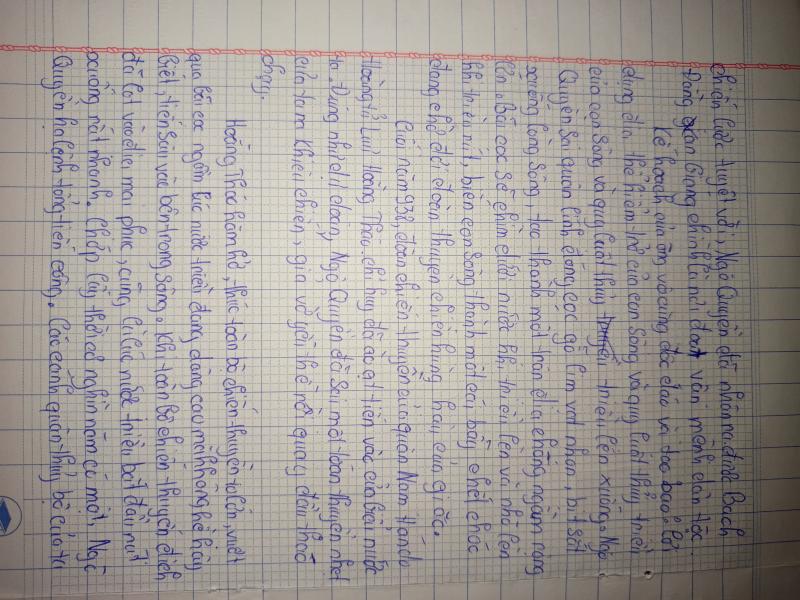 chiến lược tuyệt vời, Ngô Quyền đã nhận ra đinh Bạch
Đằng Giang chính là nơi đoạt vận mệnh dân tộc.
Kế hoạch của ông vô cùng độc đáo và táo bạo: lợi
dụng địa thế hiểm trở của con sông và quy luật thuỷ triều
của con sông và quy luật thủy triều lên xuống. Ngô
Quyền sai quân lính đóng cọc gỗ lim vạt nhọn, bịt sắt
xuống lòng sông, tạo thành một trận địa chông ngầm rộng
lớn. Bãi cọc sẽ chìm dưới nước khi triều lên và nhô lên
khi triều rút, biến con sông thành một cái bẫy chết chóc
đang chờ đợi đoàn thuyền chiến hùng hậu của giặc.
Cuối năm 938, đoàn chiến thuyền của quân Nam Hán do
Hoàng tử Lưu Hoằng Tháo chỉ huy đã ồ ạt tiến vào cửa biển nước
ta. Đúng như dự đoán, Ngô Quyền đã sai một toán thuyền nhẹ
của ta ra khiêu chiến, giả vờ yếu thế rồi quay đầu tháo
chạy.
Hoằng Tháo hăm hở, thúc toàn bộ chiến thuyền to lớn, vượt
qua bãi cọc ngầm lúc nước triều đang dâng cao mênh mông, hề hay
biết, tiến sâu vào bên trong sông. Khi toàn bộ chiến thuyền địch
đã lọt vào địa mai phục, cũng là lúc nước triều bắt đầu rút
xuống rất nhanh. Chớp lấy thời cơ nghìn năm có một, Ngô
Quyền hạ lệnh tổng tiến công. Các cánh quân thủy bộ của ta